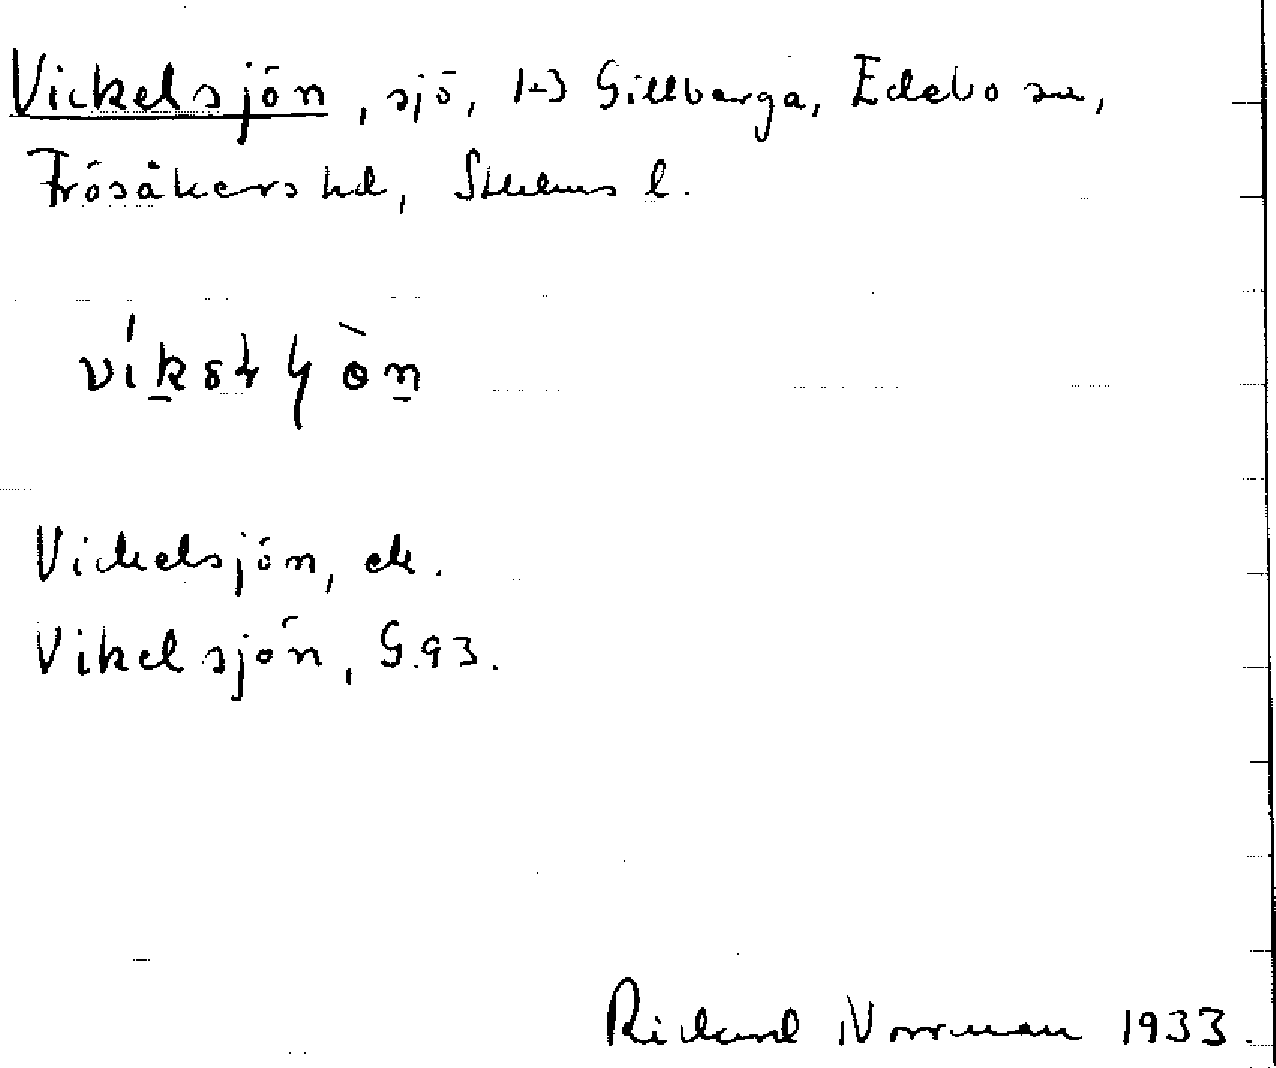 Vickelsjön, sjö, Gillberga, Edebo sn,
Frösåkers hd, Sthlms l.
Vickelsjön, ek.
Vikelsjön, G.93.
Rickard Norrman 1933.